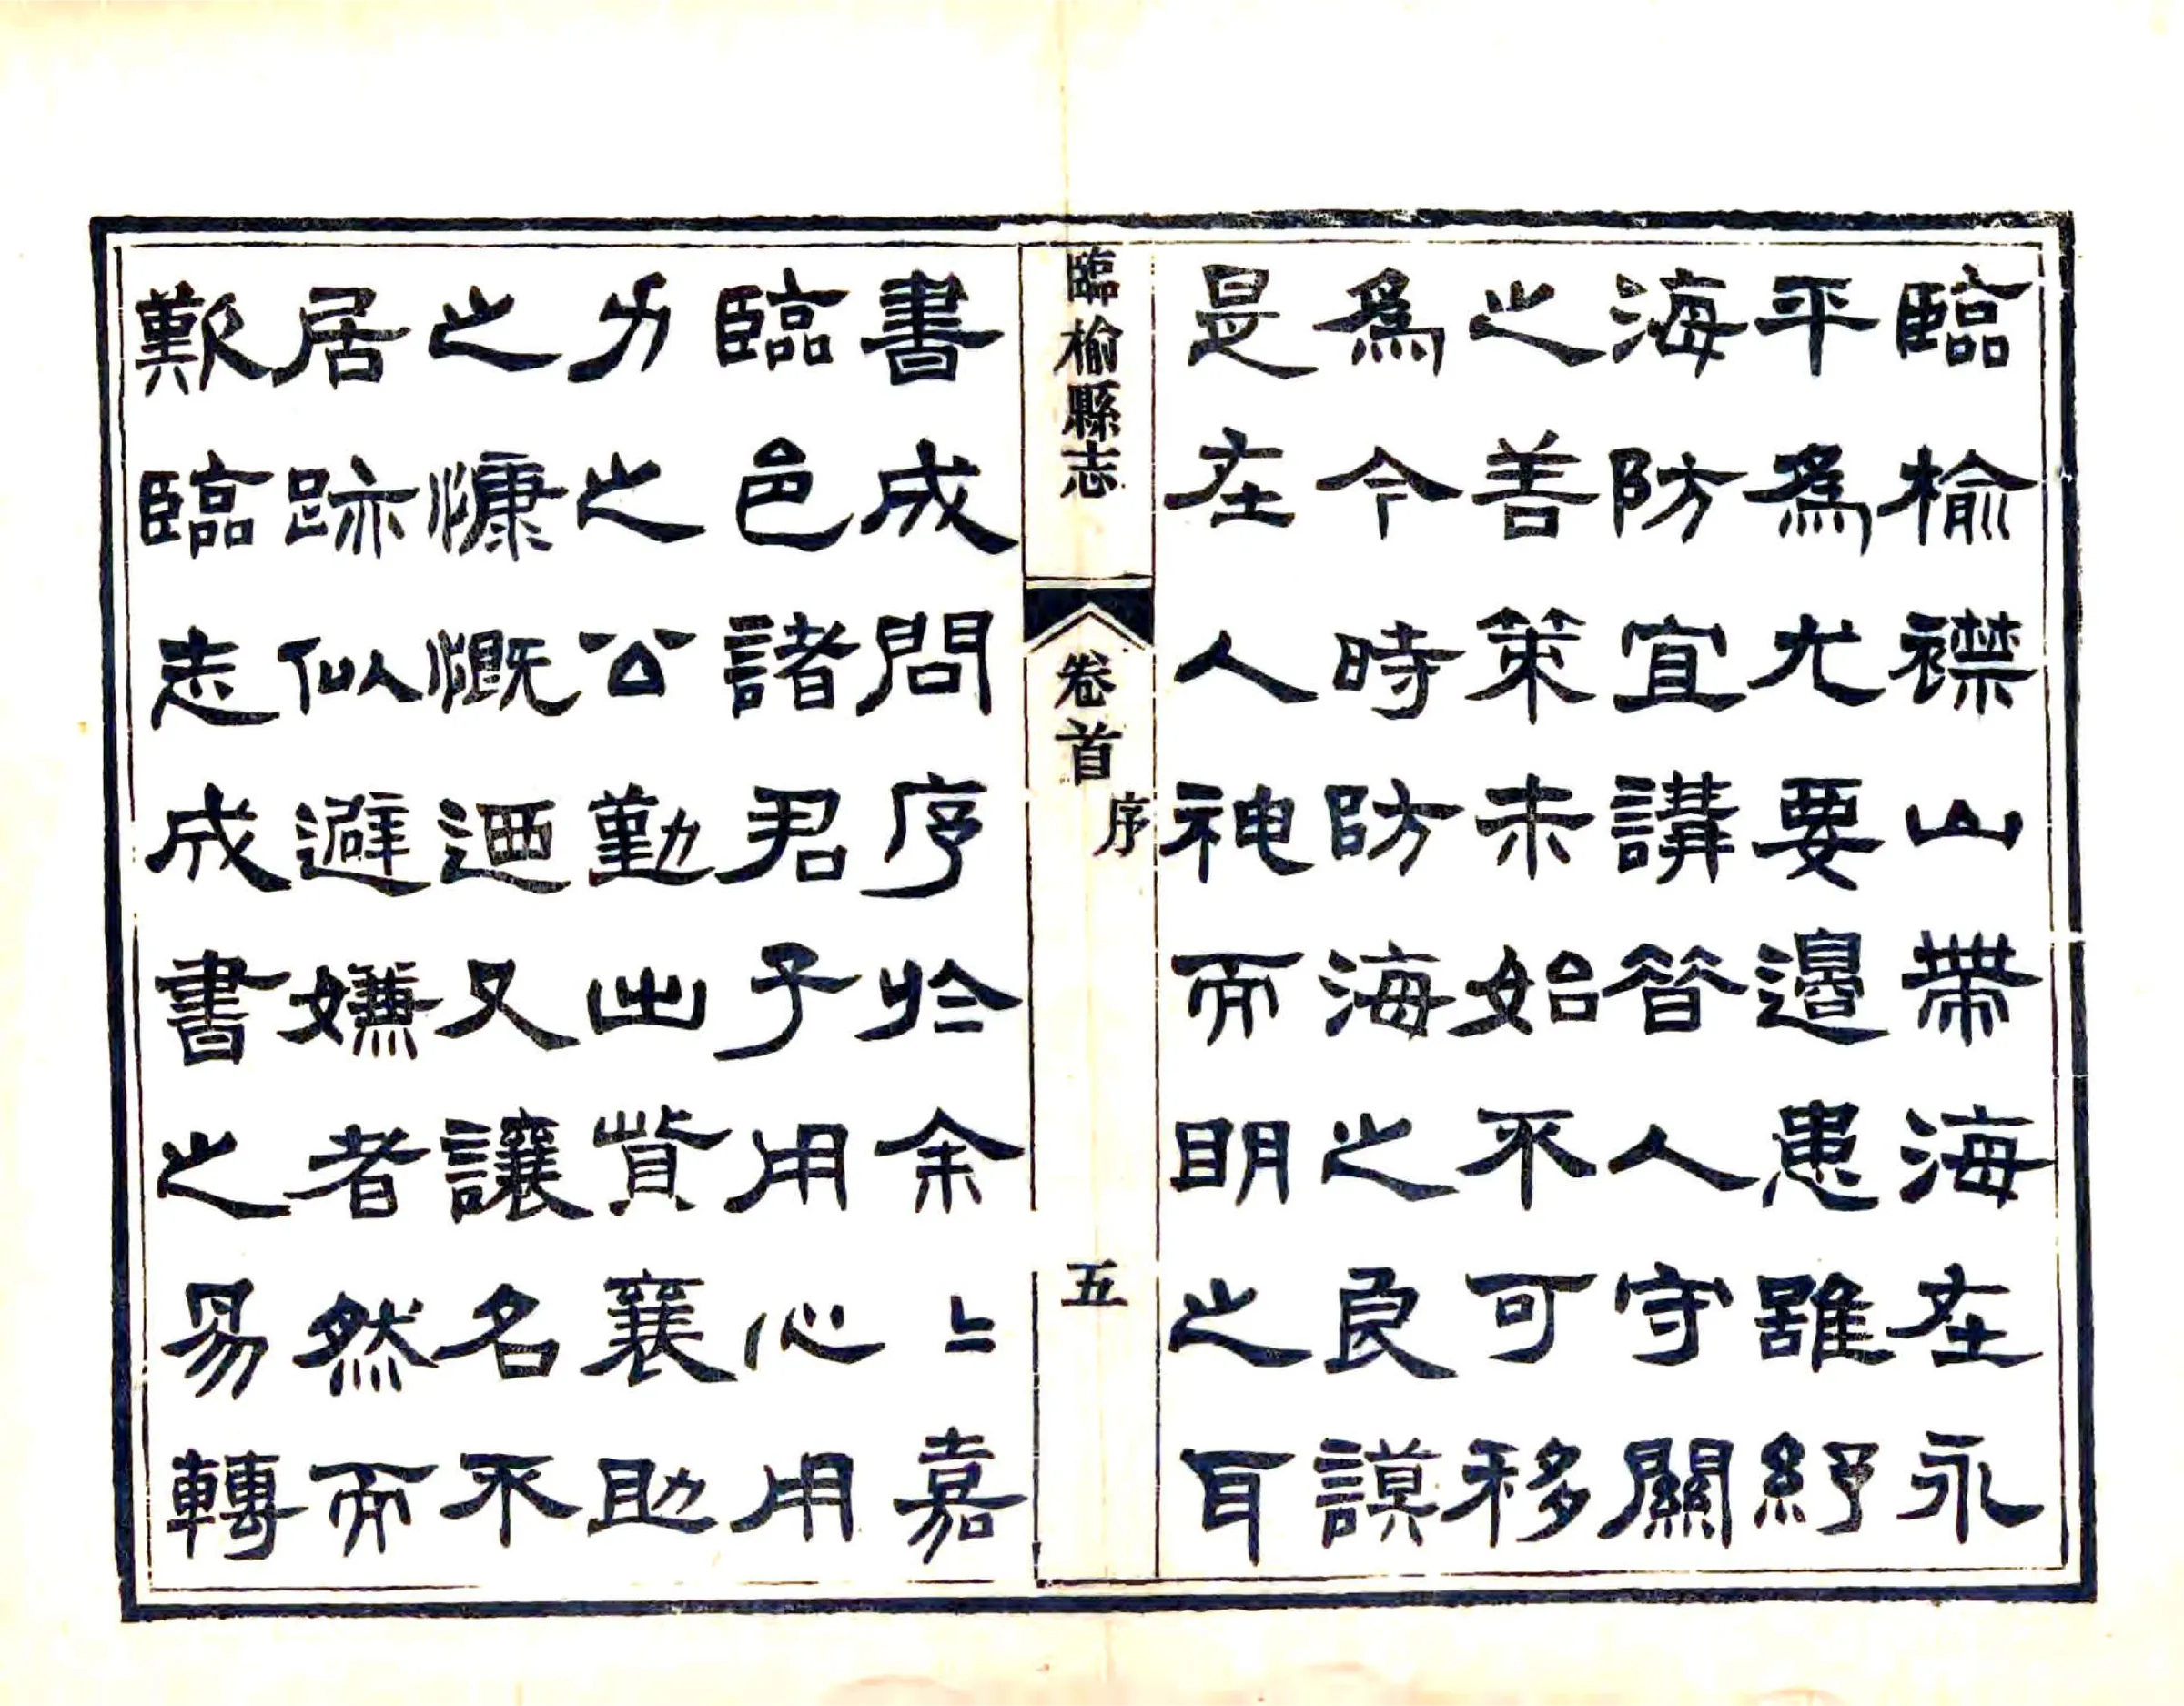 臨榆襟山帶海在永
平爲尤要邊患雖紓
海防宜講昔人守關
之善策未始不可移
爲今時防海之良謨
是在人神而明之耳
臨榆縣志
卷首
序
五
書成問序於余〻嘉
臨邑諸君子用心用
力之公勤出貲襄助
之慷慨迺又讓名不
居跡似避嫌者然而
歎臨志成書之易轉